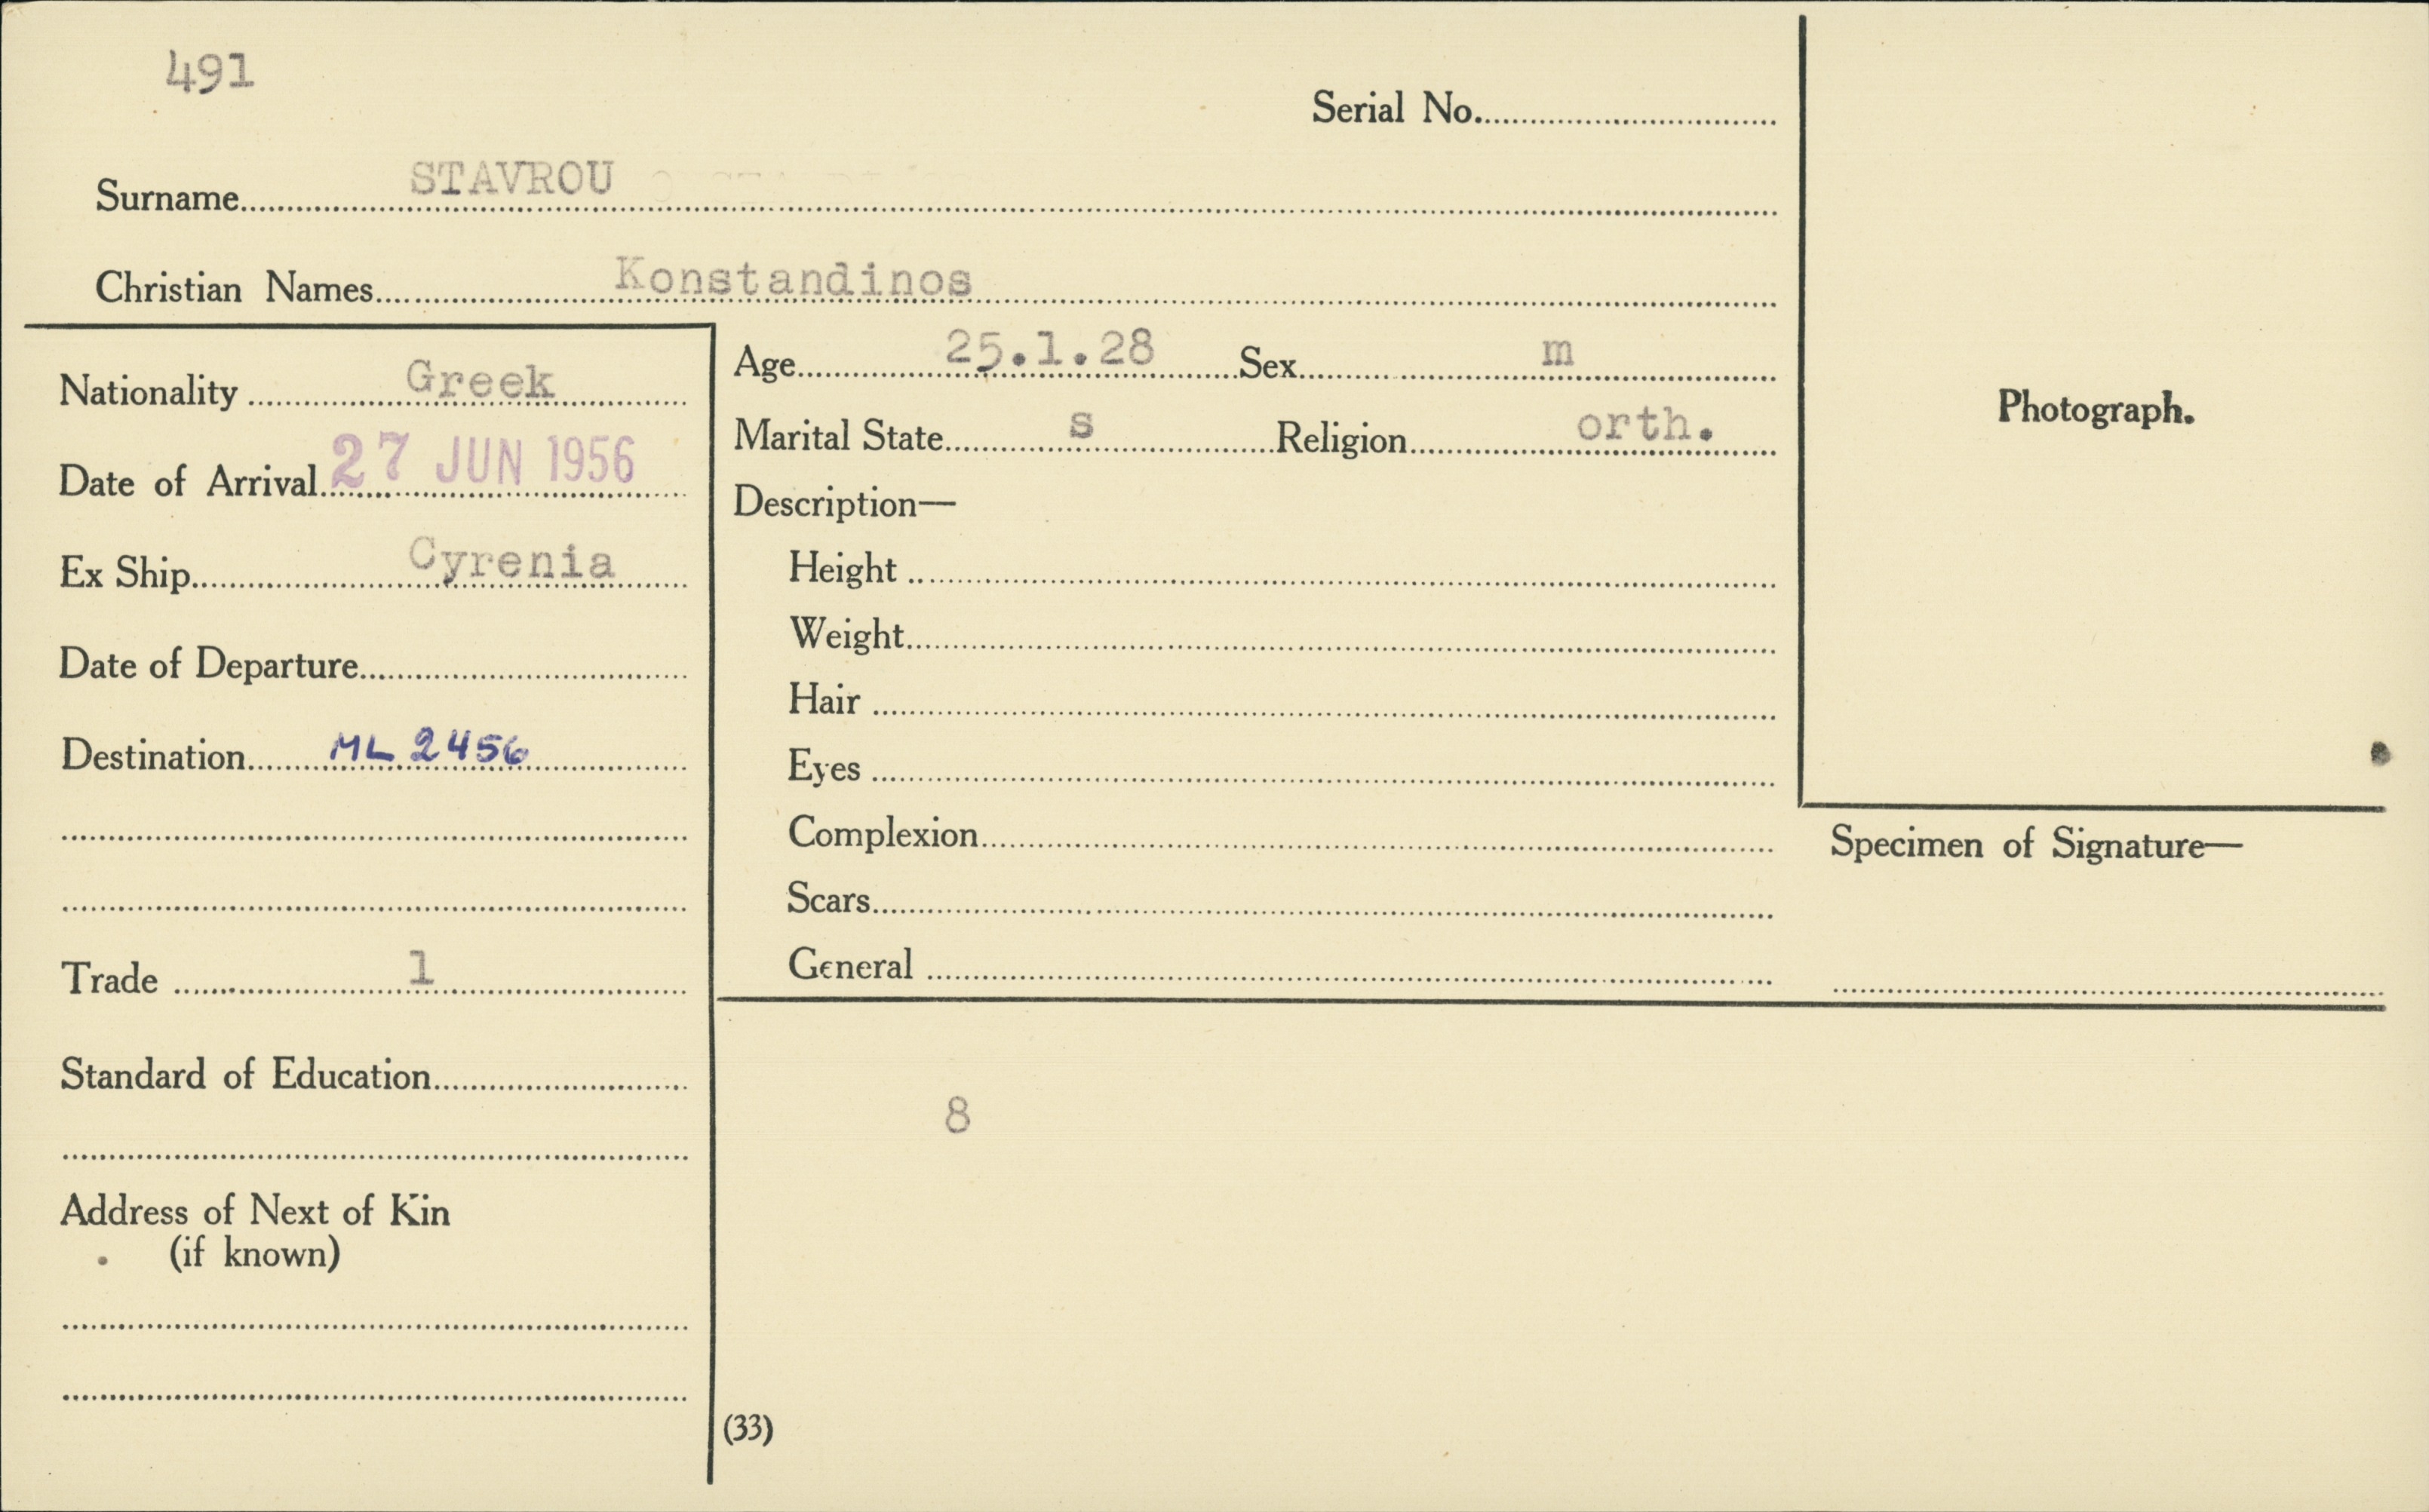 491
Serial No.
Surname STAVROU
Christian Names Konstandinos
Nationality Greek
Date of Arrival 27 JUN 1956
Ex Ship Cyrenia
Date of Departure
Destination ML 2456
Trade 1
Standard of Education
Address of Next of Kin
(if known)
Age 25.1.28 Sex m
Marital State s Religion orth.
Description—
Height
Weight
Hair
Eyes
Complexion
Scars
General
Photograph.
Specimen of Signature—
8
(33)